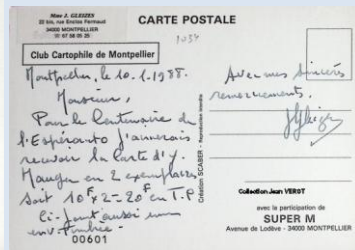 Mme J. GLEIZES
20 bis, rue Enclos Fermaud
34000 MONTPELLIER
67 58 05 25
CARTE POSTALE
1034
Club Cartophile de Montpellier
Montpellier, le 10.1.1988.
Monsieur,
Pour le Centenaire de
l'Espéranto j'aimerais
recevoir la carte d'y.
Maugen en 2 exemplaires
soit 10F x 2 = 20F en T.P
Ci-joint aussi une
env. timbrée.
00601
Avec mes sincères
remerciements.
JGleizes
Création SCABER - Reproduction interdite
Collection Jean VERST
avec la participation de
SUPER M
Avenue de Lodève - 34000 MONTPELLIER